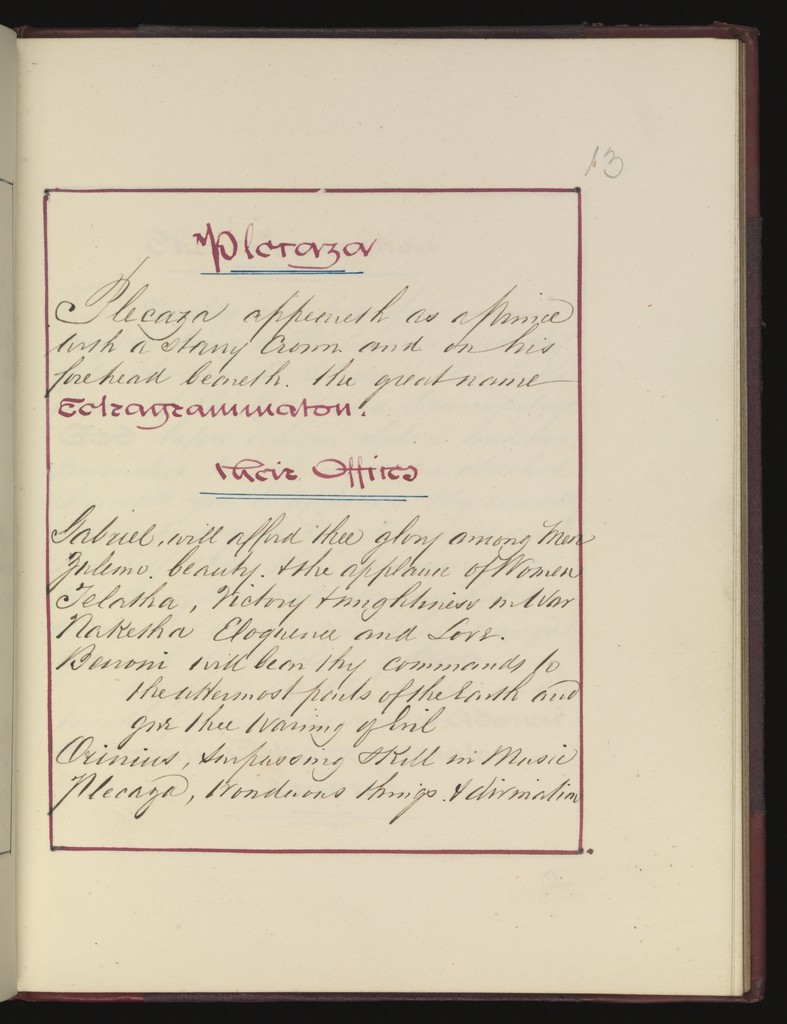 13
Plecaza
Plecaza appeareth as a Prince
with a starry Crown. and on his
forehead beareth. the great name
Tetragrammaton.
their Offices
Gabriel, will afford thee glory among Men
Zulemo. beauty. & the applause of Women
Telatha, Victory & mightiness in War
Naketha Eloquence and Love.
Benoni will bear thy commands to
the uttermost parts of the Earth and
give thee Warning of Evil
Orinius, surpassing skill in Music
Plecaza, Wonderous things. & divination